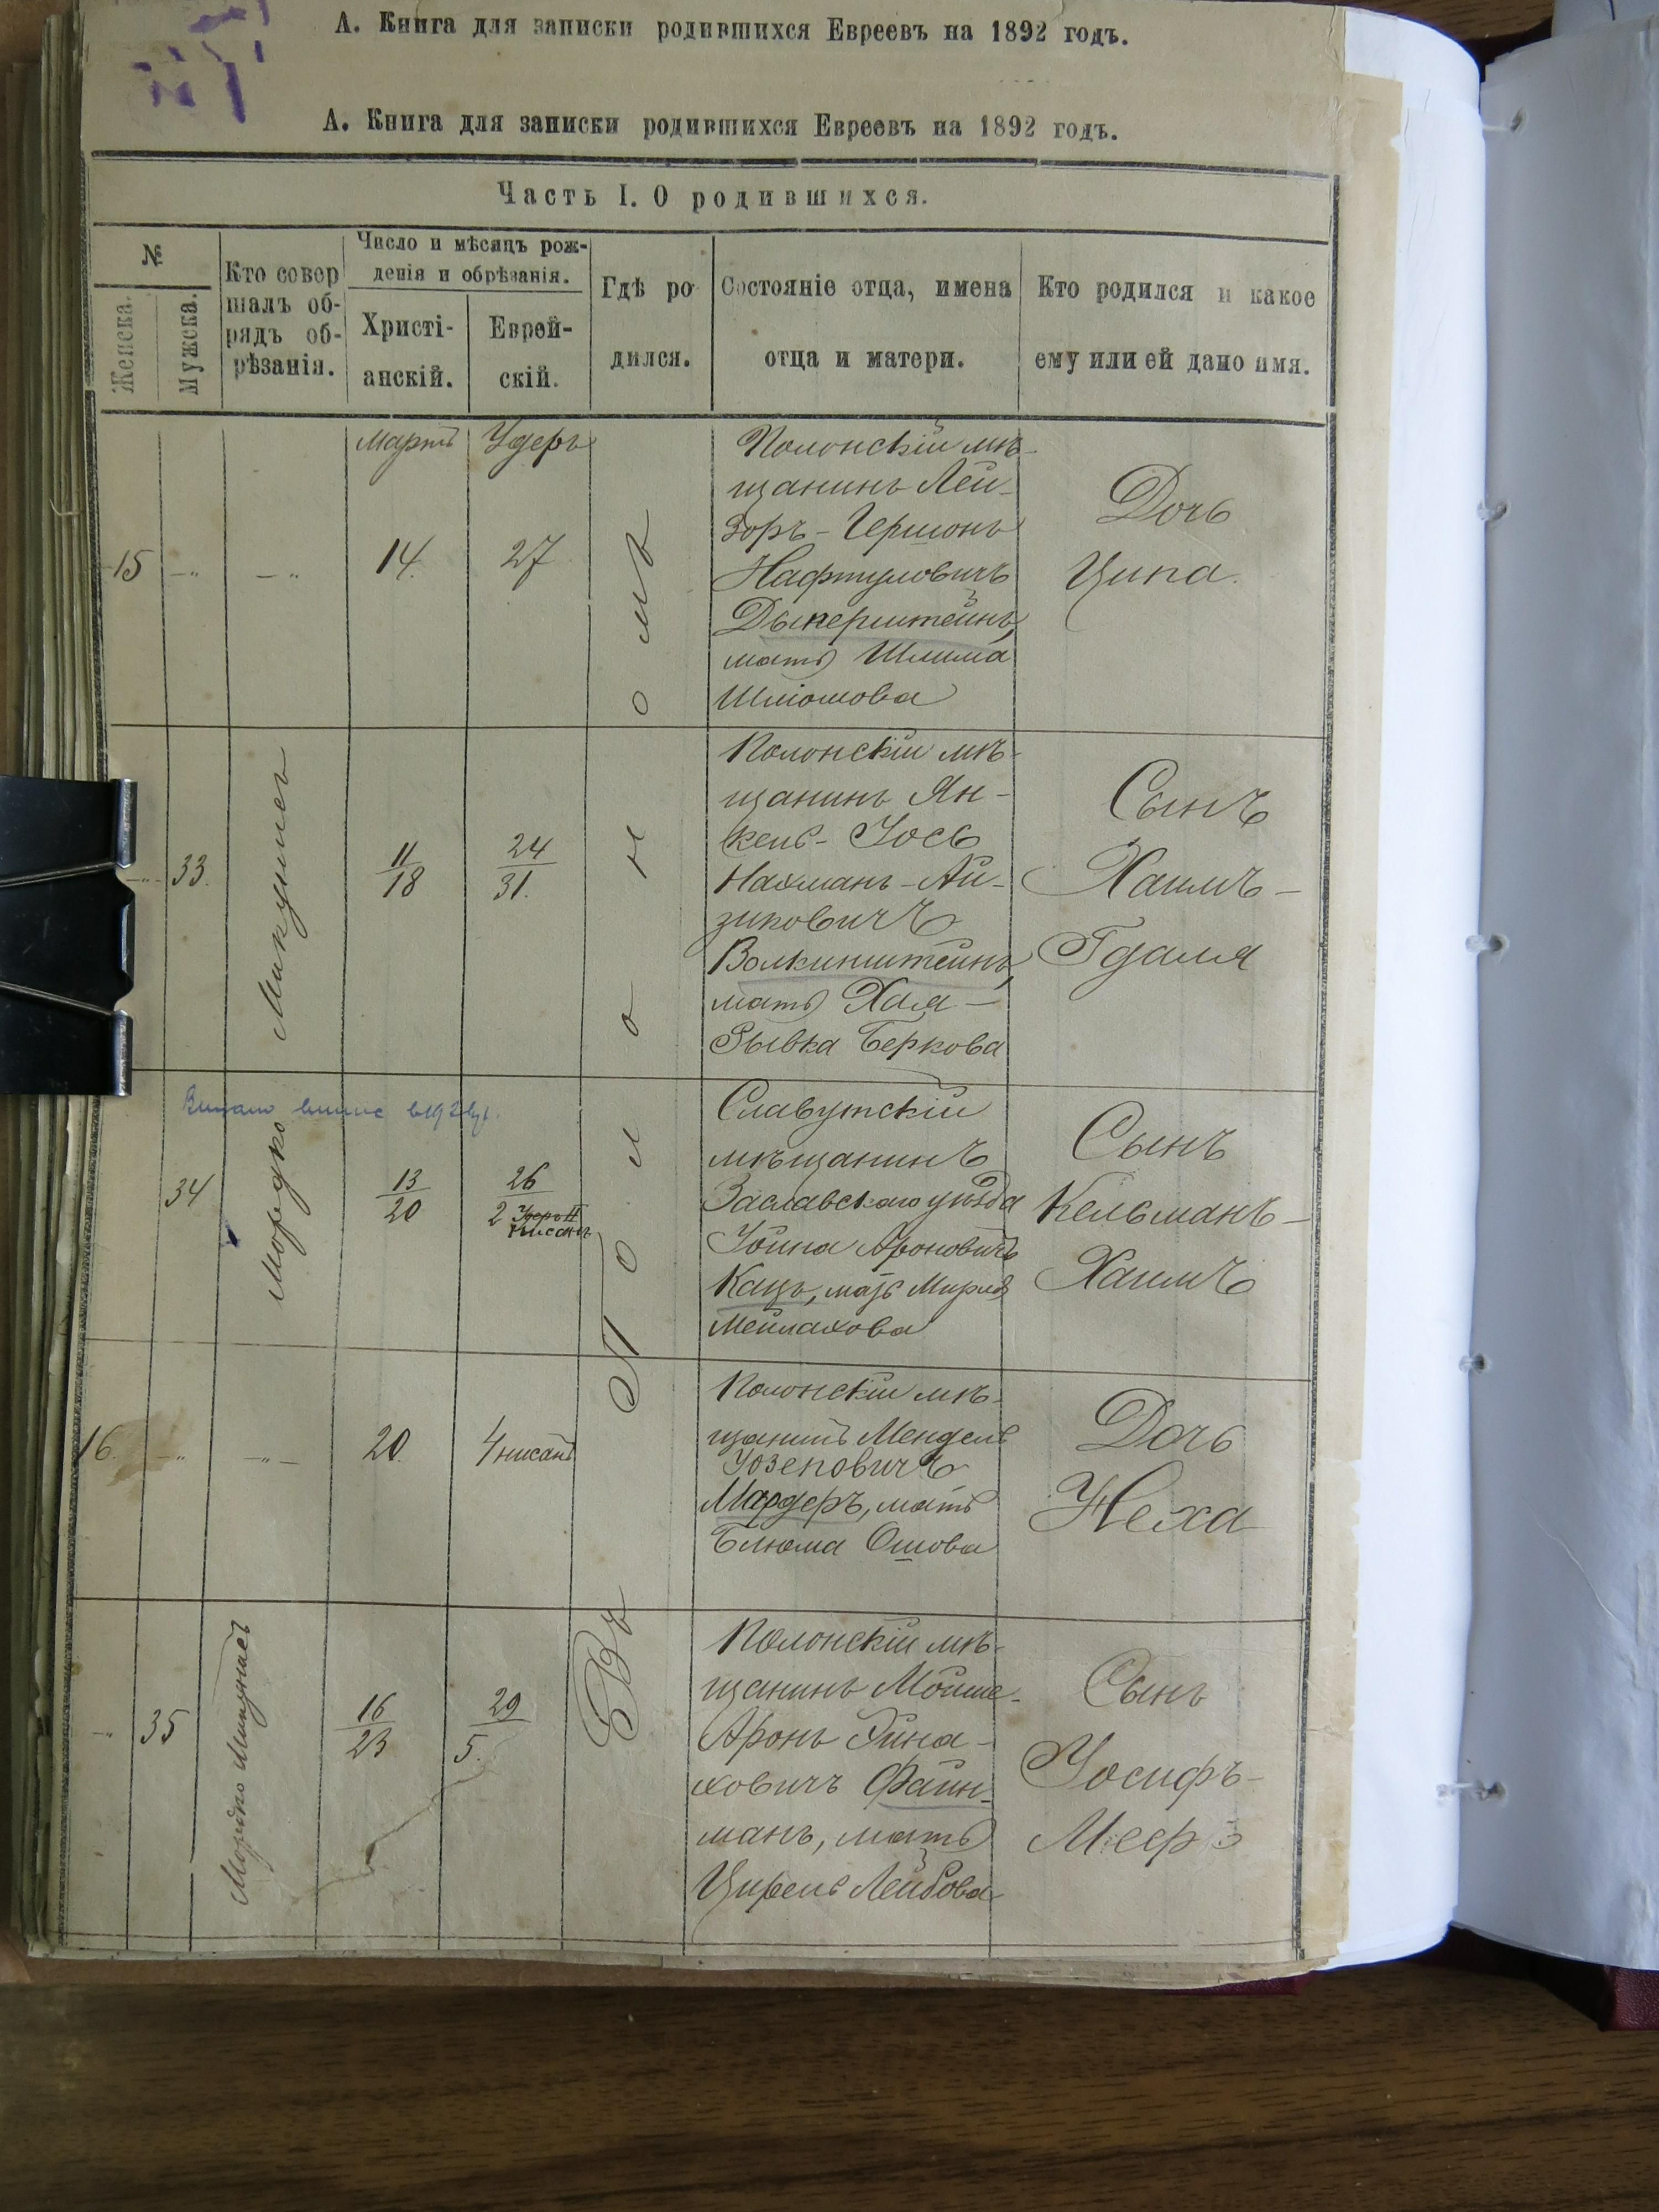 А. Книга для записки родившихся Евреевъ на 1892 годъ.
А. Книга для записки родившихся Евреевъ на 1892 годъ.
Часть I. О родившихся.
№
Женска.
Мужска.
Кто совер
шалъ об-
рядъ об-
рѣзанія.
Число и мѣсяцъ рож-
денія и обрѣзанія.
Христі-
анскій.
Еврей-
скій.
Гдѣ ро
дился.
Состояніе отца, имена
отца и матери.
Кто родился и какое
ему или ей дано имя.
Въ Полономъ
15
—"
—"
Мартъ
14.
Удеръ
27
Полонскій мѣ-
щанинъ Лей-
зоръ - Гершонъ
Нафтуловичъ
Дыкерштейнъ,
мать Шлима
Шліомова
Дочь
Ципа.
—"—
33.
Микушнеръ
11
18
24
31.
Полонскій мѣ-
щанинъ Ян-
кель - Іось
Нахманъ - Ай-
зиковичъ
Волкинштейнъ,
мать Хая —
Рывка Беркова
Сынъ
Хаимъ —
Гдаля
34
Мордко
13
20
26
2
Нисанъ
Славутскій
мѣщанинъ
Заславскаго уѣзда
Іойна Ароновичъ
Кацъ, мать Мирля
Мейлахова
Сынъ
Кельманъ —
Хаимъ
16.
—"
—"—
20.
4 нисанъ
Полонскій мѣ-
щанинъ Мендель
Іозеповичъ
Мардеръ, мать
Блюма Ошова
Дочь
Неха
—"
35
Мордко
16
23
29
5.
Полонскій мѣ-
щанинъ Мойше-
Аронъ Эйна-
ховичъ Файн-
манъ, мать
Цирель Лейбова
Сынъ
Іосифъ-
Мееръ